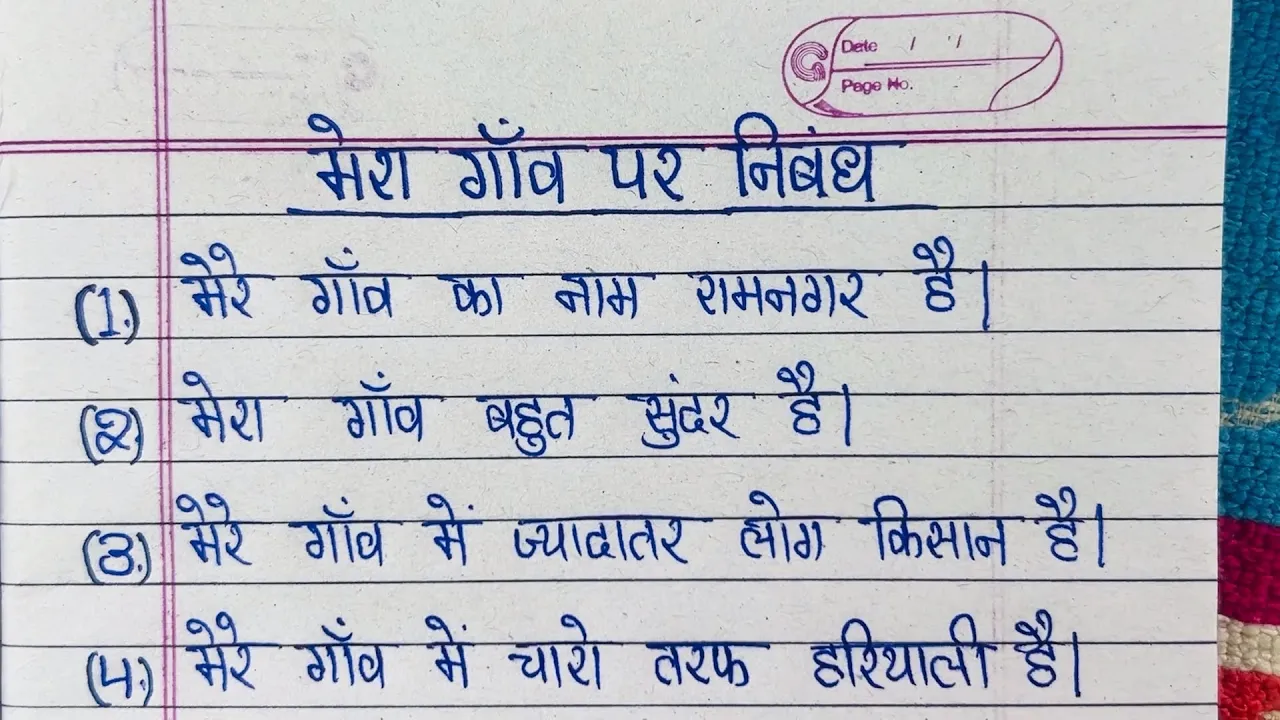 Date / /
Page No.
मेरा गाँव पर निबंध
(1.) मेरे गाँव का नाम रामनगर है।
(2.) मेरा गाँव बहुत सुंदर है।
(3.) मेरे गाँव में ज्यादातर लोग किसान है।
(4.) मेरे गाँव में चारो तरफ हरियाली है।